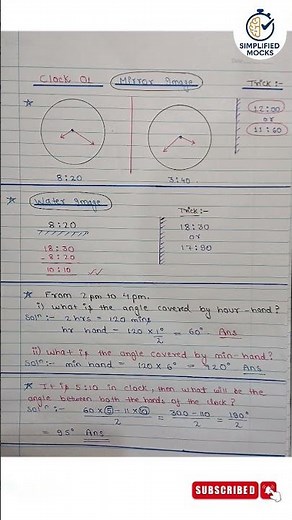 SIMPLIFIED
MOCKS
Clock Qt
Mirror Image
Trick:-
12:00
or
11:60
8:20
3:40
Water Image
Trick:-
8:20
18:30
or
17:90
18:30
- 8:20
10:10
From 2 pm to 4 pm.
i) what is the angle covered by hour-hand?
Soln:- 2 hrs = 120 mins
hr hand = 120 × 1°/2 = 60° Ans
ii) what is the angle covered by min-hand?
Soln:- min hand = 120 × 6° = 720° Ans
It is 5:10 in clock, then what will be the
angle between both the hands of the clock?
Soln:- 60 × 5 - 11 × 10 / 2 = 300 - 110 / 2 = 190° / 2
= 95° Ans
SUBSCRIBED